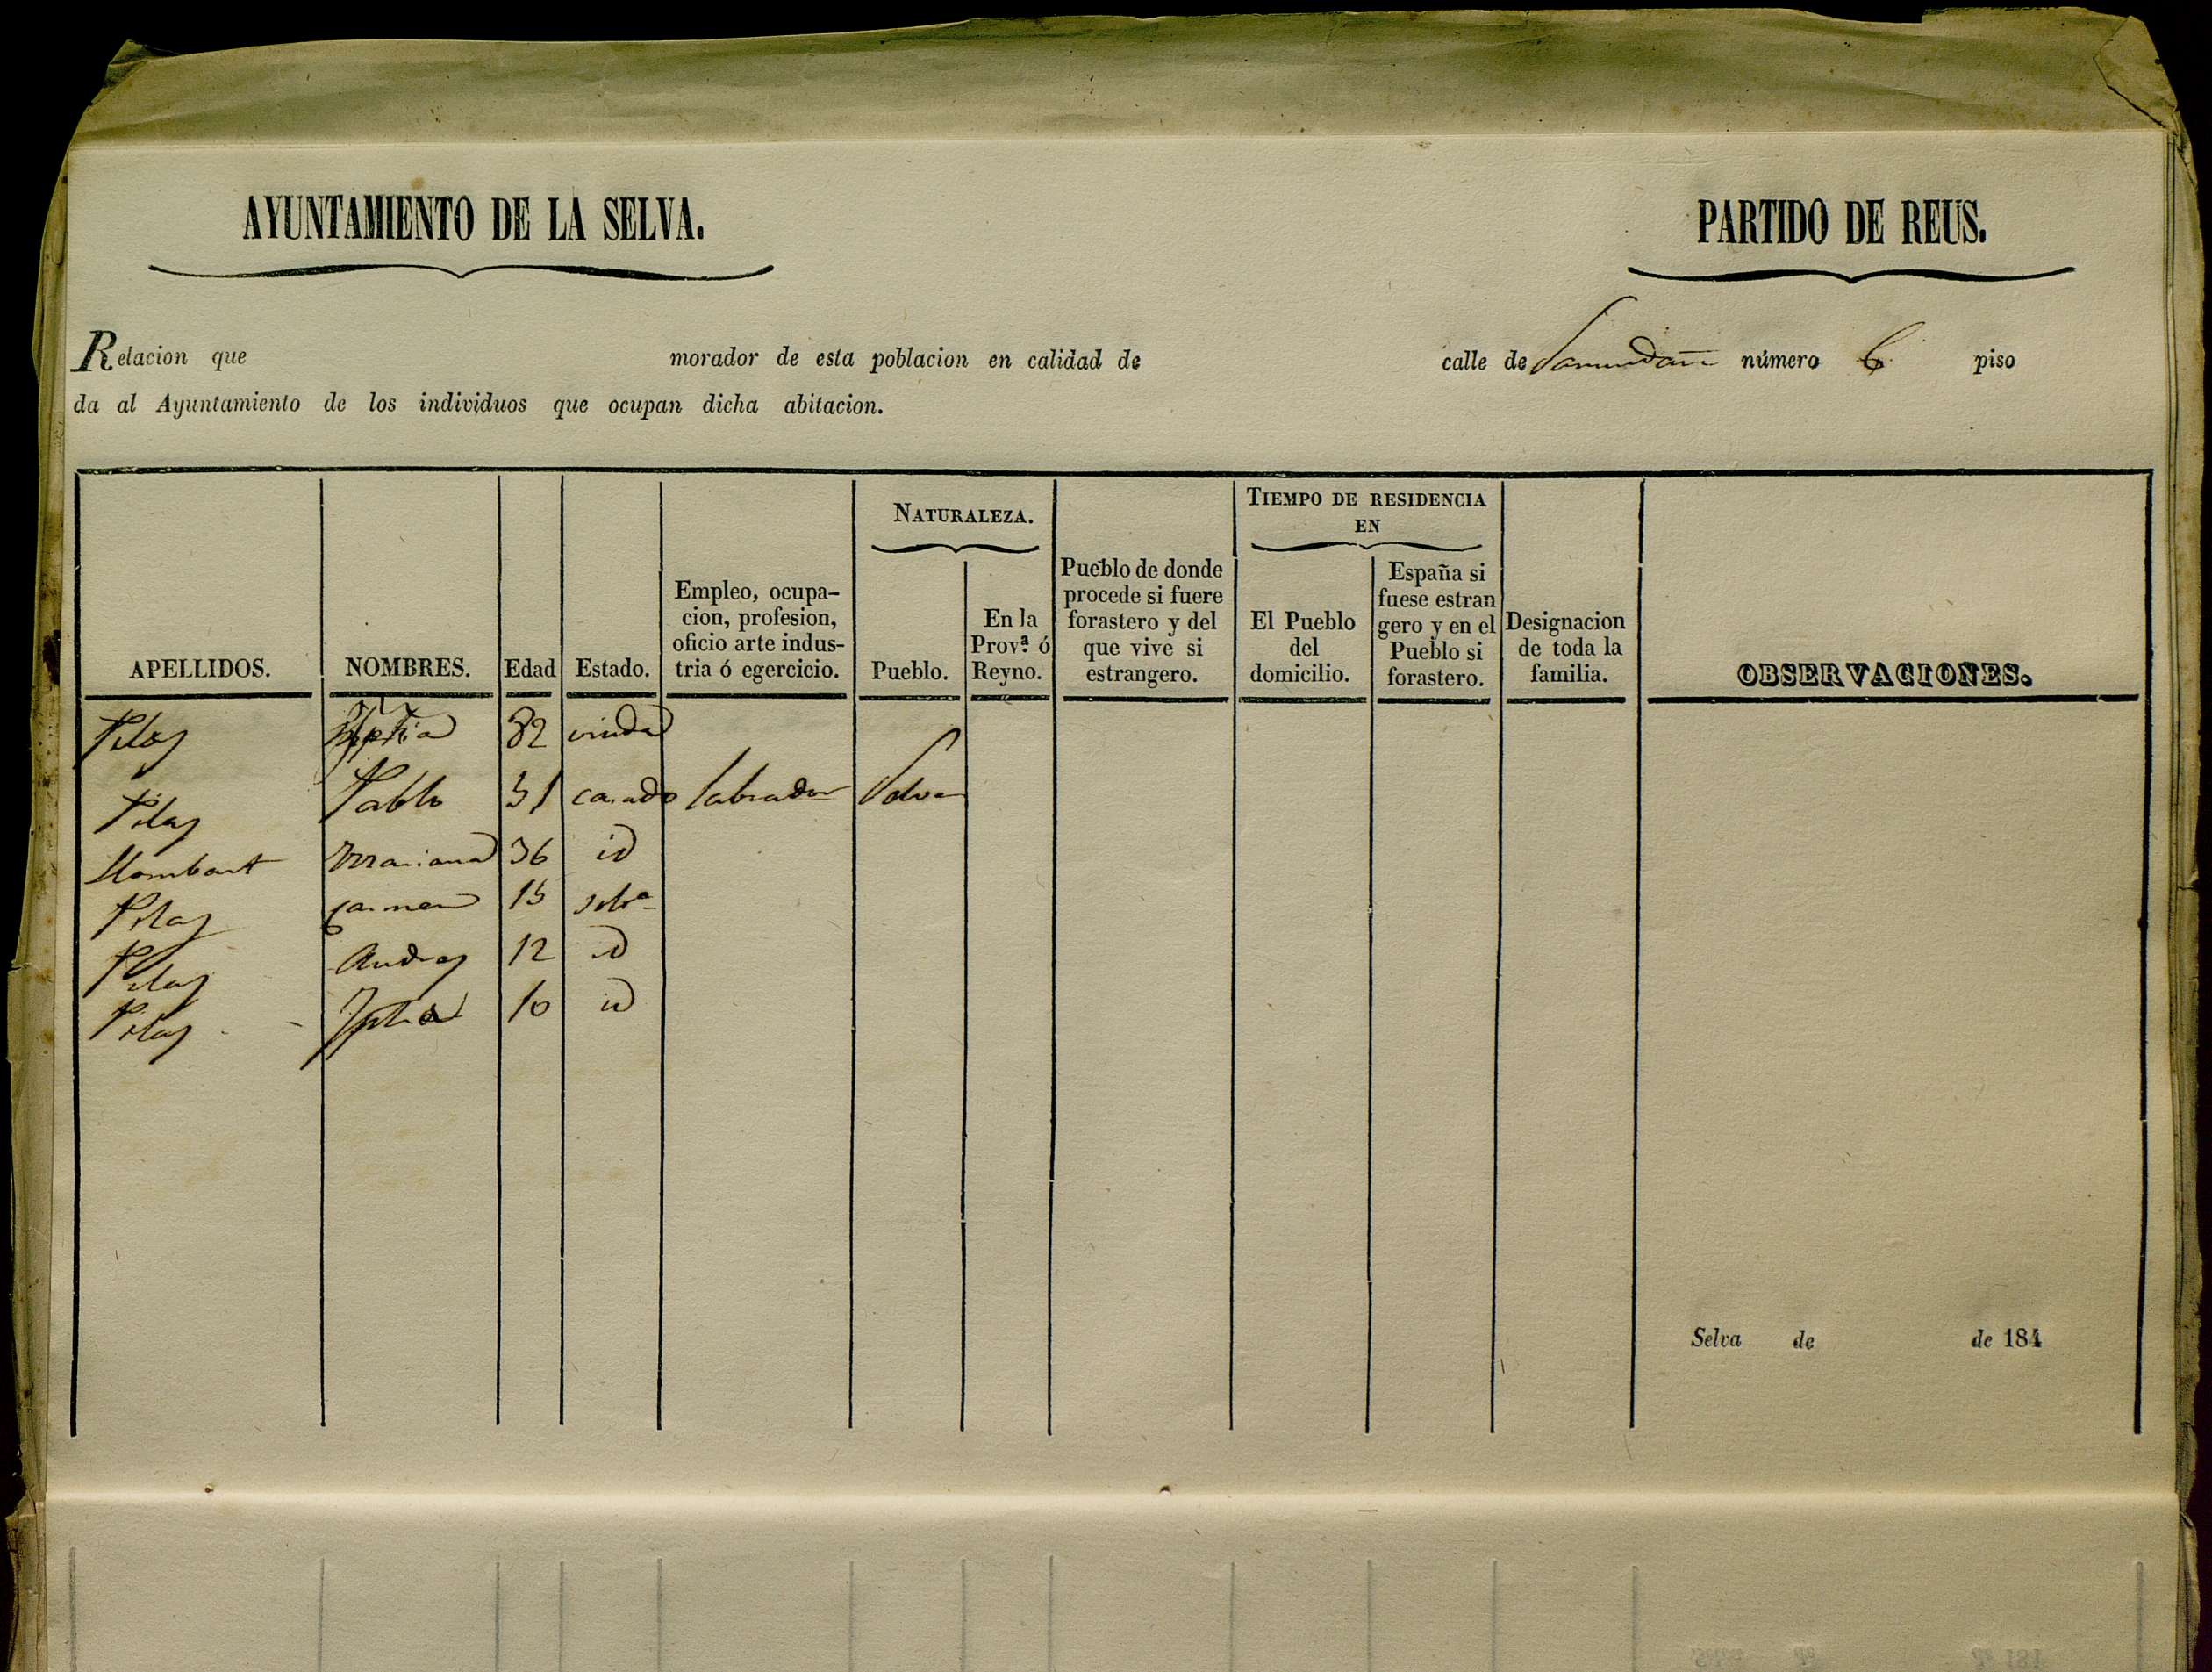 AYUNTAMIENTO DE LA SELVA.
PARTIDO DE REUS.
Relacion que morador de esta poblacion en calidad de calle de número 6 piso
da al Ayuntamiento de los individuos que ocupan dicha abitacion.
APELLIDOS.
NOMBRES.
Edad
Estado.
Empleo, ocupa-
cion, profesion,
oficio arte indus-
tria ó egercicio.
NATURALEZA.
Pueblo.
En la
Prov.ª ó
Reyno.
Pueblo de donde
procede si fuere
forastero y del
que vive si
estrangero.
TIEMPO DE RESIDENCIA
EN
El Pueblo
del
domicilio.
España si
fuese estran
gero y en el
Pueblo si
forastero.
Designacion
de toda la
familia.
OBSERVACIONES.
82 viuda
Pablo 31 casado labrador Selva
Llombart Mariana 36 id
Carmen 15 solt.ª
Andres 12 id
10 id
Selva de de 184